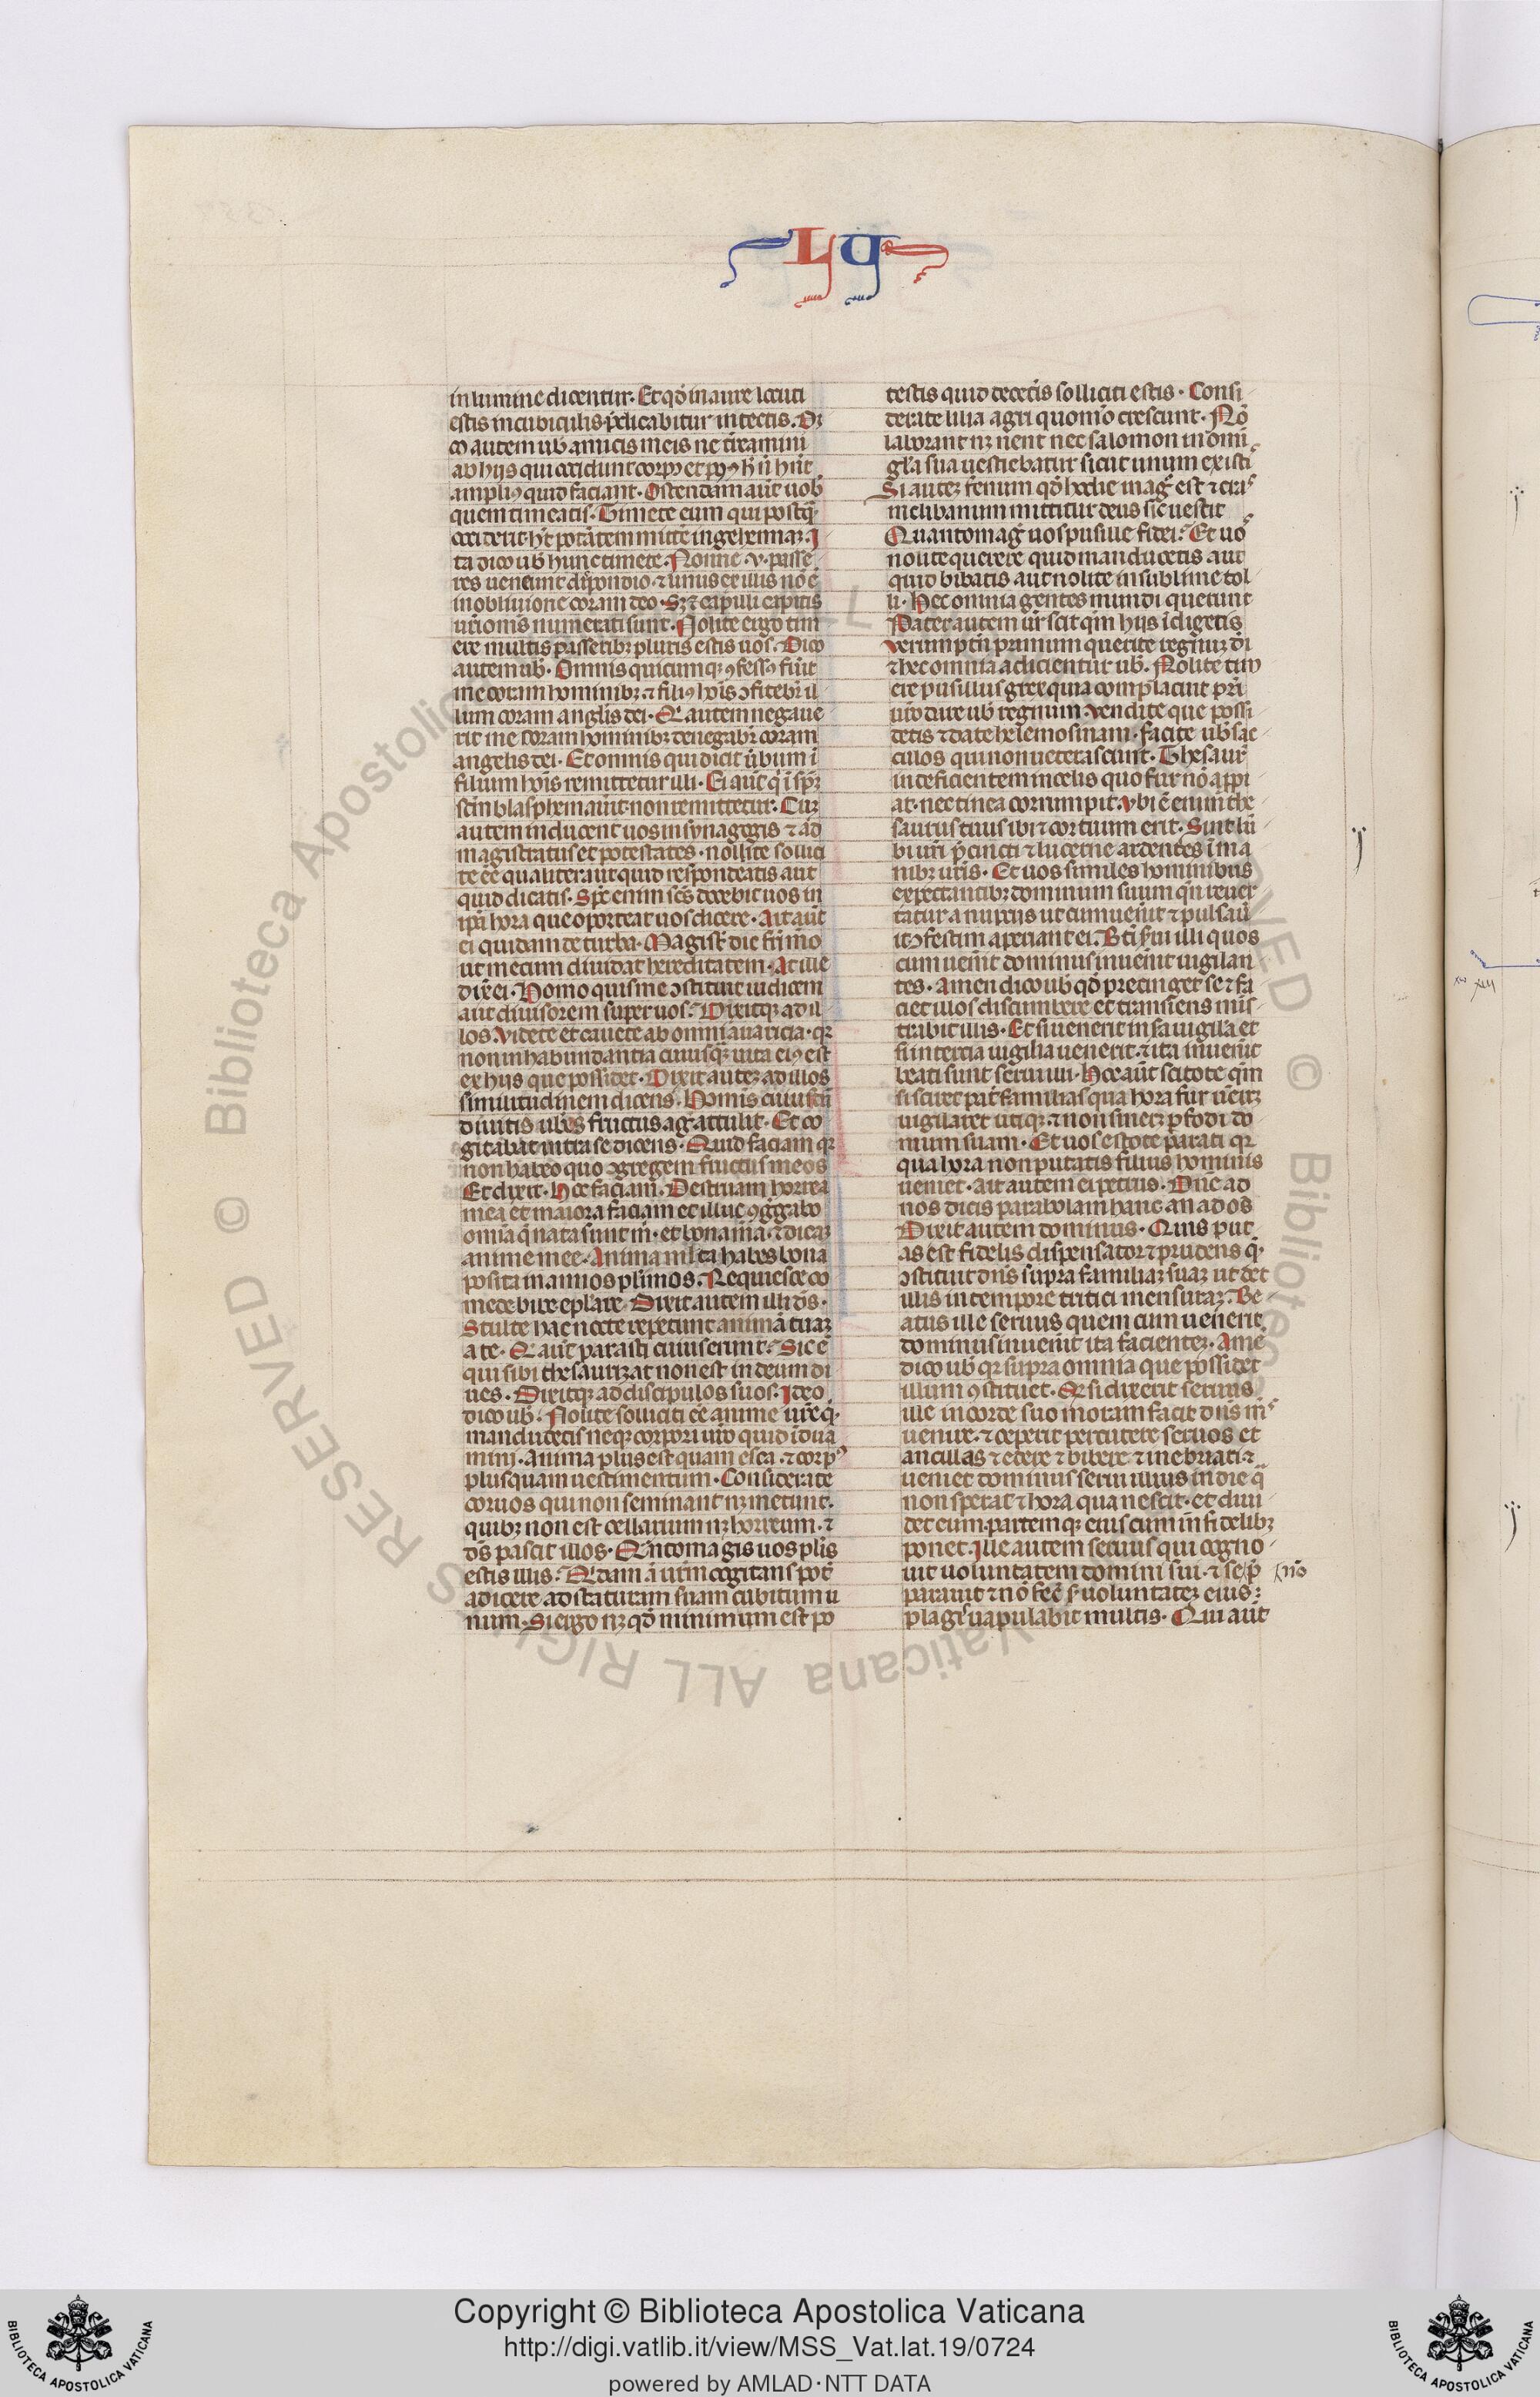 LU
in lumine dicentur. Et qđ in aure locuti
estis in cubiculis p̃dicabitur in tectis. Di
co autem uob̃ amicis meis ne tẽreamini
ab hijs qui occidunt corpꝰ et poꝰ h̃ ñ hñt
ampliꝰ quid faciant. Ostendam aũt uob̃
quem timeatis. Timete eum qui postq̃
occiderit. h̃t potãtem mitte in gehennaꝫ. I
ta dico uob̃ hunc timete. Nonne .v. passe
res ueneunt dip̃ondio. ⁊ unus ex illis nõ ẽ
in obliuione coram deo. Sꝫ ⁊ capilli capitis
ur̃i om̃s numerati sunt. Nolite ergo tim
ere multis passeribꝫ pluris estis uos. Dico
autem uob̃. Omnis quicumqꝫ ꝯfessꝰ fũit
me coram hominibꝫ. ⁊ filiꝰ hõis ꝯfitebit̃ il
lum coram angl̃is dei. Q̃ autem negaue
rit me coram hominibꝫ denegabit̃ coram
angelis dei. Et omnis qui dicit ũbum ĩ
filium hõis remittetur illi. Ei aũt q̃ ĩ sp̃ꝫ
sctm blasphemauit. non remittetur. Cuꝫ
autem inducent uos in synagogis ⁊ ad
magistratus et potestates. nollite sollici
te eẽ qualiter aut quid respondeatis aut
quid dicatis. Sp̃c enim sc̃s docebit uos in
ip̃a hora que oporteat uos dicere. Ait aũt
ei quidam de turba. Magist̃ dic fr̃i mõ
ut mecum diuidat hereditatem. At ille
dix̃ ei. Homo quis me ꝯstituit iudicem
aut diuisorem super uos? Dixitqꝫ ad il
los. Videte et cauete ab omni auaricia. qꝛ
non in habundantia cuiusq̃ꝫ uita eiꝰ est
ex hijs que possidet. Dixit auteꝫ ad illos
similitudinem dicens. Homĩs cuiusdã
diuitis ub̃es fructus ag̃ attulit. Et co
gitabat intra se dicens. Quid faciam qꝛ
non habeo quo ꝯgregem fructus meos
Et dixit. Hoc faciam. Destruam horrea
mea et maiora faciam et illuc ꝯg̃gabo
omĩa q̃ nata sunt m̃. et bona m̃a. ⁊ dicaꝫ
anime mee. Anima mlta habes bona
posita in annos pl̃imos. Requiesce co
mede bibe epl̃are. Dixit autem illi ds̃.
Stulte hac nocte repetunt animã tuaꝫ
a te. Q̃ aũt parasti cuius erunt? Sic ẽ
qui sibi thesaurizat non est in deum di
ues. Dixitqꝫ ad discipulos suos. Ideo
dico uob̃. Nolite solliciti eẽ anime ur̃e q̃
manducetis neqꝫ corpori ur̃o quid ĩdua
mini. Anima plus est quam esca. ⁊ corpꝰ
plus quam uestimentum. Considerate
coruos qui non seminant nꝫ metunt.
quibꝫ non est cellarium nꝫ horreum. ⁊
ds̃ pascit illos. Q̃nto magis uos pl̃is
estis illis? Q̃ dam ã ur̃m cogitans pot̃
adicere ad staturam suam cubitum u
num. Si ergo nꝫ qđ minimum est po
testis quid de cet̃is solliciti estis. Consi
derate lilia agri quom̃o crescunt. Nõ
laborant nꝫ nent nec salomon in omĩ
gl̃a sua uestiebatur sicut unum ex isti
Si auteꝫ fenum qđ hodie in ag̃ est ⁊ cras
in clibanum mittitur deus sic uestit
Quanto mag̃ uos pusille fidei? Et uo
nolite querere quid manducetis aut
quid bibatis aut nolite in sublime tol
li. Hec omnia gentes mundi querunt
Pater autem ur̃ scit qm̃ hijs ĩdigetis
Verumptñ primum querite regnuꝫ di
⁊ hec omnia adicientur uob̃. Nolite tim
ere pusillus grex quia complacuit pr̃i
ur̃o dare uob̃ regnum. Vendite que possi
detis ⁊ date helemosinam. facite uob̃ sac
culos qui non ueterascunt. Thesaur̃
in deficientem in celis quo fur nõ app̃i
at. nec tinea corrumpit. Vbi ẽ enim the
saurus tuus ibi ⁊ cor tuum erit. Sint lũ
bi ur̃i p̃cincti ⁊ lucerne ardentes ĩ ma
nibꝫ ur̃is. Et uos similes hominibus
expectantibꝫ dominum suum qñ reuer
tatur a nuptijs ut cum uenit ⁊ pulsaũ
it ꝯfestim aperiant ei. Bt̃i s̃ui illi quos
cum uenit dominus inuenit uigilan
tes. Amen dico uob̃ qđ precinget se ⁊ fa
ciet illos discumbere et transiens mis
trabit illis. Et si uenerit in sãa uigil̃a et
si in tercia uigilia uenerit. ⁊ ita inuenit
beati sunt serui illi. Hoc aũt scitote qm̃
si sciret pat̃familias qua hora fur ueĩꝫ
uigilaret utiqꝫ. ⁊ non sineꝫ p̃fodi do
mum suam. Et uos estote parati qꝛ
qua hora non putatis filius hominis
ueniet. Ait autem ei petrus. Dñe ad
nos dicis parabolam hanc an ad os̃
Dixit autem dominus. Quis put
as est fidelis dispensator ⁊ prudens q̃
ꝯstituit dñs supra familiaꝫ suaꝫ ut det
illis in tempore tritici mensuraꝫ. Be
atus ille seruus quem cum uenerit
dominus inuenit ita facienteꝫ. Amẽ
dico uob̃ qꝛ supra omnia que possidet
illum ꝯstituet. Q̃ si dixerit seruus
ille in corde suo moram facit dñs ms̃
uenire. ⁊ ceperit percutere seruos et
ancillas ⁊ edere ⁊ bibere ⁊ inebriari ⁊
ueniet dominus serui illius in die q̃
non sperat ⁊ hora qua nescit. et diui
det eum. partemqꝫ eius cum infidelibꝫ
ponet. Ille autem seruus qui cogno
uit uoluntatem domini sui. ⁊ se p̃
nõ
parauit ⁊ nõ fec̃ s̃ uoluntateꝫ eius:
plagꝭ uapulabit multis. Qui aũt
Copyright © Biblioteca Apostolica Vaticana
http://digi.vatlib.it/view/MSS_Vat.lat.19/0724
powered by AMLAD·NTT DATA